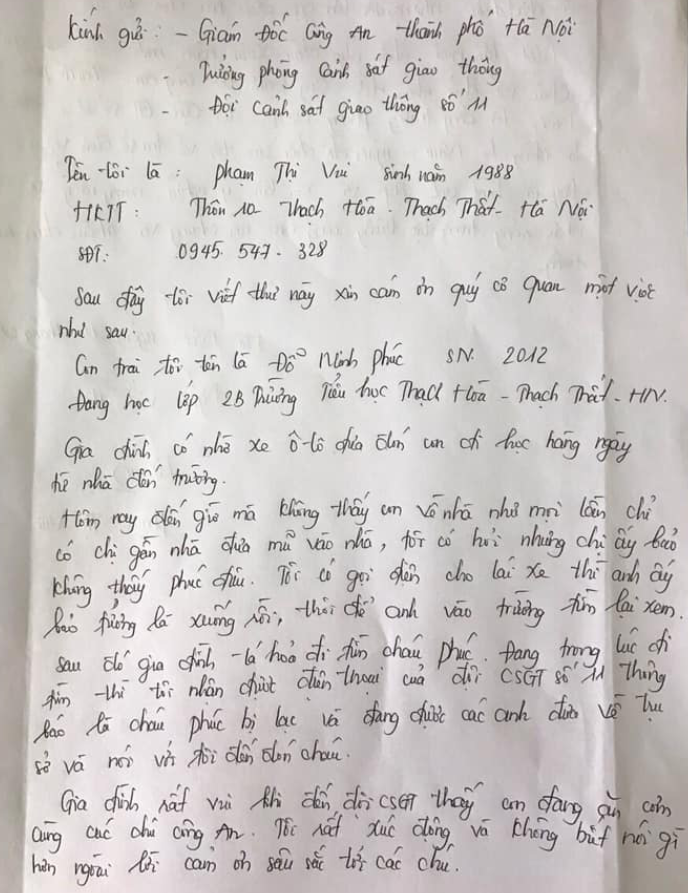 Kính gửi: - Giám Đốc Công An thành phố Hà Nội
- Trưởng phòng Cảnh sát giao thông
- Đội Cảnh sát giao thông số 11
Tên tôi là: Phạm Thị Vui sinh năm 1988
HKTT: Thôn 10 Thạch Hòa - Thạch Thất - Hà Nội
SĐT: 0945. 547. 328
Sau đây tôi viết thư này xin cảm ơn quý cơ quan một việc
như sau.
Con trai tôi tên là Đỗ Minh Phúc SN. 2012
Đang học lớp 2B Trường Tiểu học Thạch Hòa - Thạch Thất - HN.
Gia đình có nhờ xe ô-tô đưa đón con đi học hàng ngày
từ nhà đến trường.
Hôm nay đến giờ mà không thấy con về nhà như mọi lần chỉ
có chị gần nhà đưa mũ vào nhà, tôi có hỏi nhưng chị ấy bảo
không thấy Phúc đâu. Tôi có gọi điện cho lái xe thì anh ấy
bảo tưởng là xuống rồi, thôi để anh vào trường tìm lại xem.
Sau đó gia đình tá hoả đi tìm cháu Phúc. Đang trong lúc đi
tìm thì tôi nhận được điện thoại của đội CSGT số 11 thông
báo là cháu Phúc bị lạc và đang được các anh đưa về trụ
sở và nói với tôi đến đón cháu.
Gia đình rất vui khi đến đội CSGT thấy con đang ăn cơm
cùng các chú công An. Tôi rất xúc động và không biết nói gì
hơn ngoài lời cảm ơn sâu sắc tới các chú.